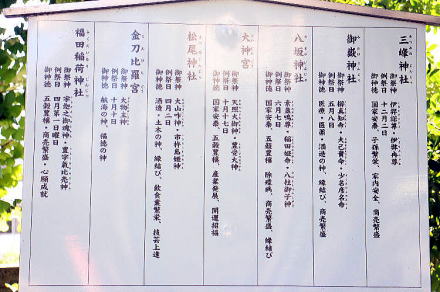 三峰神社
御祭神 伊弉諾尊・伊弉冉尊
例祭日 十二月二日
御神徳 国家安泰、子孫繁栄、家内安全、商売繁盛
御嶽神社
御祭神 櫛真知命・大己貴命・少名彦名命
例祭日 五月八日
御神徳 医療・医薬・酒造の神、縁結び、商売繁盛
八坂神社
御祭神 素盞嗚尊・稲田姫命・八柱御子神
例祭日 六月七日
御神徳 国家安泰、五穀豊穣、除疫病、商売繁盛、縁結び
大神宮
御祭神 天照大御神・豊受大神
例祭日
御神徳 国家安泰、五穀豊穣、産業発展、開運招福
松尾神社
御祭神 大山咋神・市杵島姫神
例祭日 四月二日
御神徳 酒造・土木の神、縁結び、飲食業繁栄、技芸上達
金刀比羅宮
御祭神 大物主神
例祭日 十月十日
御神徳 航海の神、福徳の神
福田稲荷神社
御祭神 宇迦之御魂神・豊宇気比売神
例祭日 四月第一日曜日
御神徳 五穀豊穣・商売繁盛・心願成就